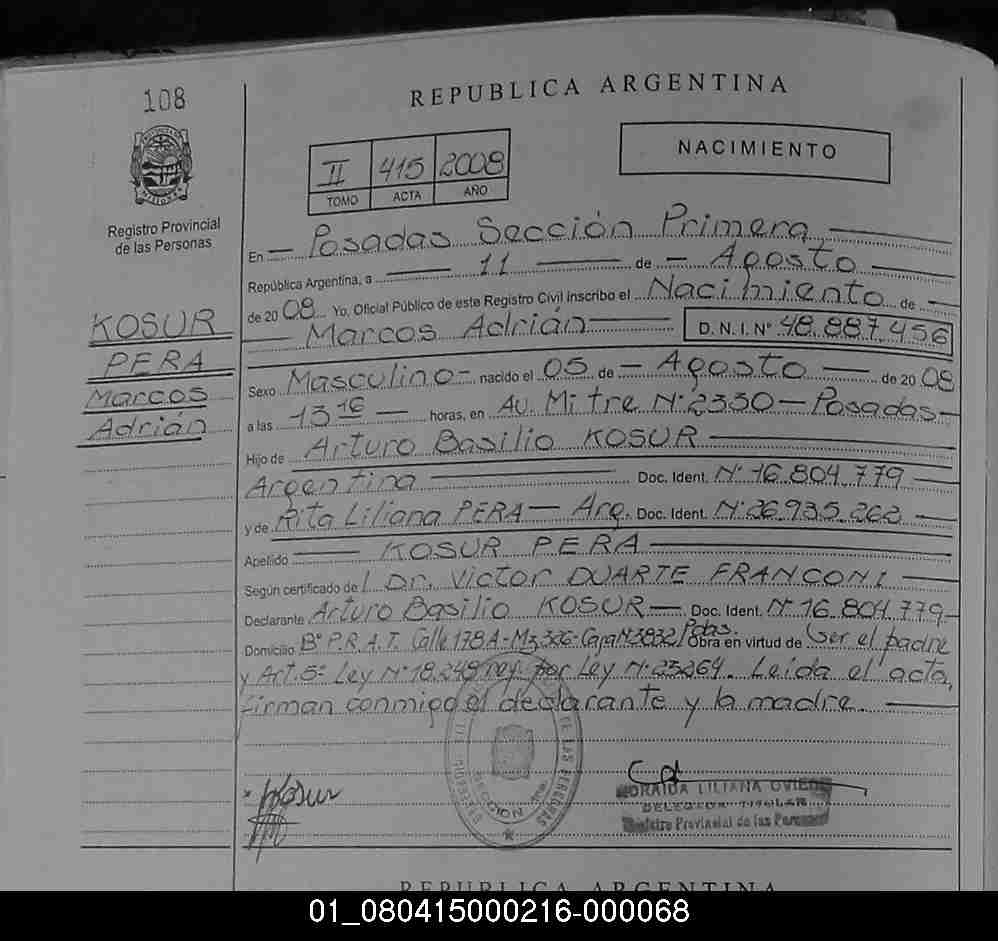 108
REPUBLICA ARGENTINA
NACIMIENTO
II 415 2008
TOMO ACTA AÑO
Registro Provincial
de las Personas
KOSUR
PERA
Marcos
Adrián
En — Posadas Sección Primera —
República Argentina, a — 11 — de — Agosto —
de 2008 Yo, Oficial Público de este Registro Civil inscribo el Nacimiento de —
— Marcos Adrián — D.N.I.Nº 48.887.456
Sexo Masculino — nacido el 05 de — Agosto — de 2008
a las 13 16 — horas, en Av. Mitre Nº 2330 — Posadas —
Hijo de Arturo Basilio KOSUR —
Argentina — Doc. Ident. Nº 16.804.779 —
y de Rita Liliana PERA — Arg. Doc. Ident. Nº 26.935.262 —
Apellido — KOSUR PERA —
Según certificado de Dr. Victor DUARTE FRANCONI —
Declarante Arturo Basilio KOSUR — Doc. Ident. Nº 16.804.779 —
Domicilio Bº P.R.A.T. Calle 178 A - Mz 326 - Casa Nº 3832/Pdas. Obra en virtud de Ser el padre
y Art. 5º Ley Nº 18.248 por Ley Nº 23264. Leída el acta,
firman conmigo el declarante y la madre. —
Kosur
SECCION 1ra
LILIANA OVIEDO
DELEGADA TITULAR
Registro Provincial de las Personas
REPUBLICA ARGENTINA
01_080415000216-000068